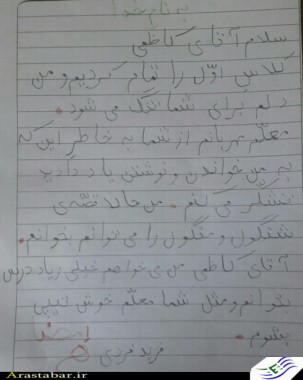 به نام خدا
سلام آقای کاظمی
کلاس اوّل را تمام کردیم و من
دلم برای شما تنگ می شود.
معلّم مهربانم از شما به خاطر این که
به من خواندن و نوشتن یاد دادید
تشکّر می کنم. من حالا قصّه ی
شنگول و منگول را می توانم بخوانم.
آقای کاظمی من می خواهم خیلی زیاد درس
بخوانم و مثل شما معلّم خوش تیپی
بشوم.
امضا
فرید فردی
Arastabar.ir